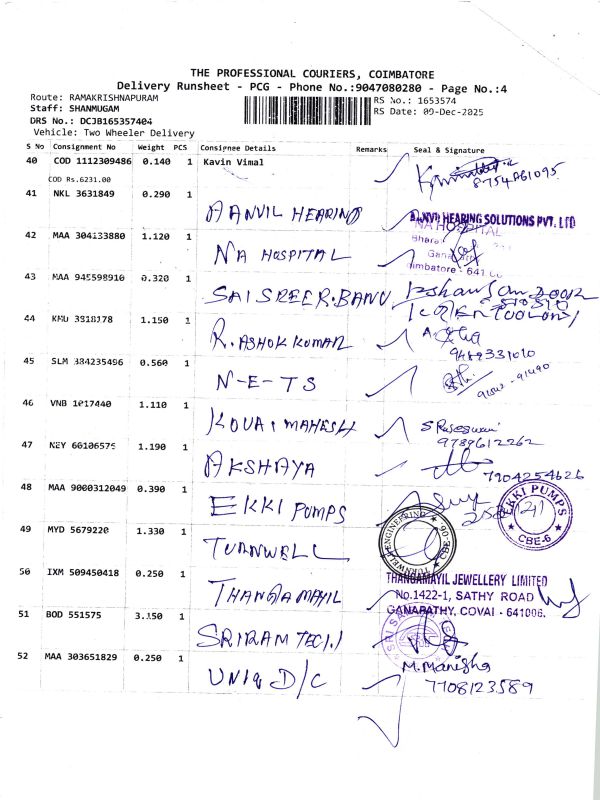 THE PROFESSIONAL COURIERS, COIMBATORE
Delivery Runsheet - PCG - Phone No.:9047080280 - Page No.:4
Route: RAMAKRISHNAPURAM
RS No.: 1653574
Staff: SHANMUGAM
RS Date: 09-Dec-2025
DRS No.: DCJB165357404
Vehicle: Two Wheeler Delivery
S No Consignment No Weight PCS Consignee Details Remarks Seal & Signature
40 COD 1112309486 0.140 1 Kavin Vimal
COD Rs.6231.00
41 NKL 3631849 0.290 1 AANVIL HEARING
AANVII HEARING SOLUTIONS PVT. LTD
42 MAA 304133880 1.120 1 NA HOSPITAL
NA HOSPITAL
43 MAA 945598910 0.320 1 SAI SREE R. BANU
44 KMU 3918178 1.150 1 R. ASHOK KUMAR
9489331010
45 SLM 384235496 0.560 1 N-E-TS
46 VNB 1017440 1.110 1 KOVAI MAHESH
S Rajeswari
9789612262
47 NEY 66106575 1.190 1 AKSHAYA
7904254626
48 MAA 9000312049 0.390 1 EKKI PUMPS
EKKI PUMPS
CBE-6
49 MYD 5679220 1.330 1 TURNWELL
TURNWELL ENGINEERING
CBE-06
50 IXM 509450418 0.250 1 THANGAMAYIL
THANGAMAYIL JEWELLERY LIMITED
No.1422-1, SATHY ROAD
GANAPATHY, COVAI - 641006.
51 BOD 551575 3.150 1 SRIRAM TECH
52 MAA 303651829 0.250 1 UNIQ D/C
M. Manisha
7708123589